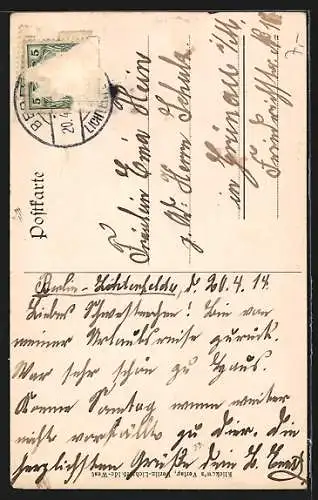 7.-
5 5
BER
20.4
LICHTERF
Postkarte
Fräulein Ema Hein
z. Dt: Herrn Schulz
in Grünau i/M.
Friedrichstr.
Berlin-Lichterfelde, d. 20.4.14.
Liebes Schwesterchen! Bin von
meiner Urlaubsreise zurück.
War sehr schön zu Haus.
Komme Sonntag wenn weiter
nicht vorfällt zu Dir. Die
herzlichsten Grüße Dein
Verlag, Berlin-Lichterfelde-West